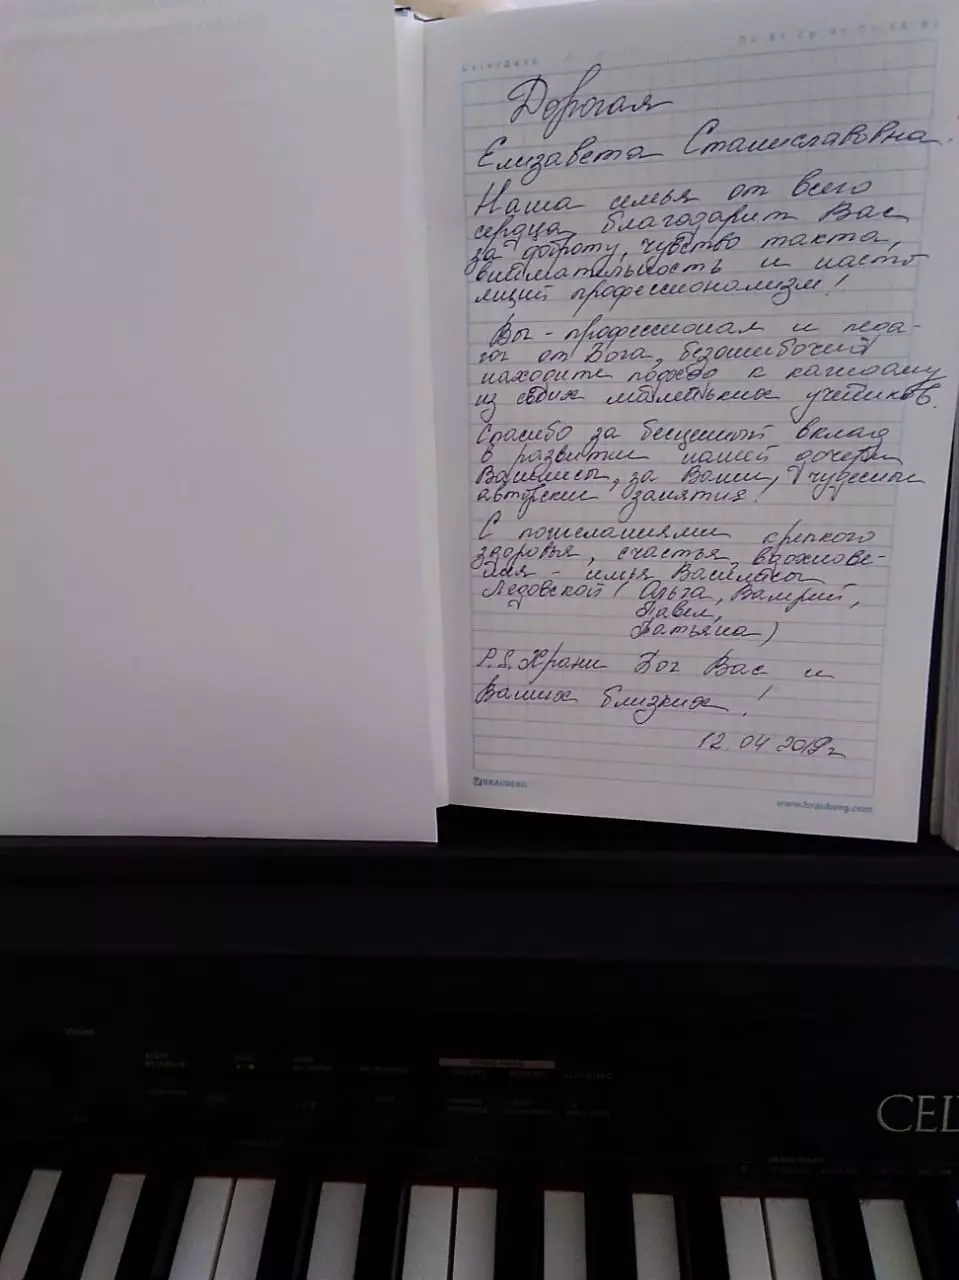 Дорогая
Елизавета Станиславовна.
Наша семья от всего
сердца благодарит Вас
за доброту, чувство такта,
внимательность и насто
ящий профессионализм!
Вы - профессионал и педа-
гог от Бога, безошибочно
находите подход к каждому
из своих маленьких учеников.
Спасибо за бесценный вклад
в развитии нашей дочери
Василисы, за Ваши, чудесные
авторские занятия!
С пожеланиями крепкого
здоровья, счастья, вдохнове-
ния - семья Василисы
Ледовской (Ольга, Валерий,
Павел,
Татьяна)
P.S. Храни Бог Вас и
Ваших близких!
12.04 2019г
BRAUBERG
www.brauberg.com
CEL